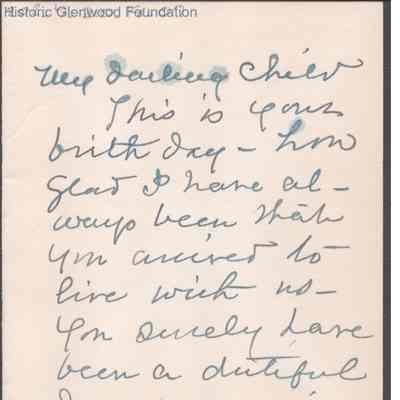 Historic Glenwood Foundation
My darling Child
This is your
birth day - how
glad I have al-
ways been that
you arrived to
live with us -
You surely have
been a dutiful